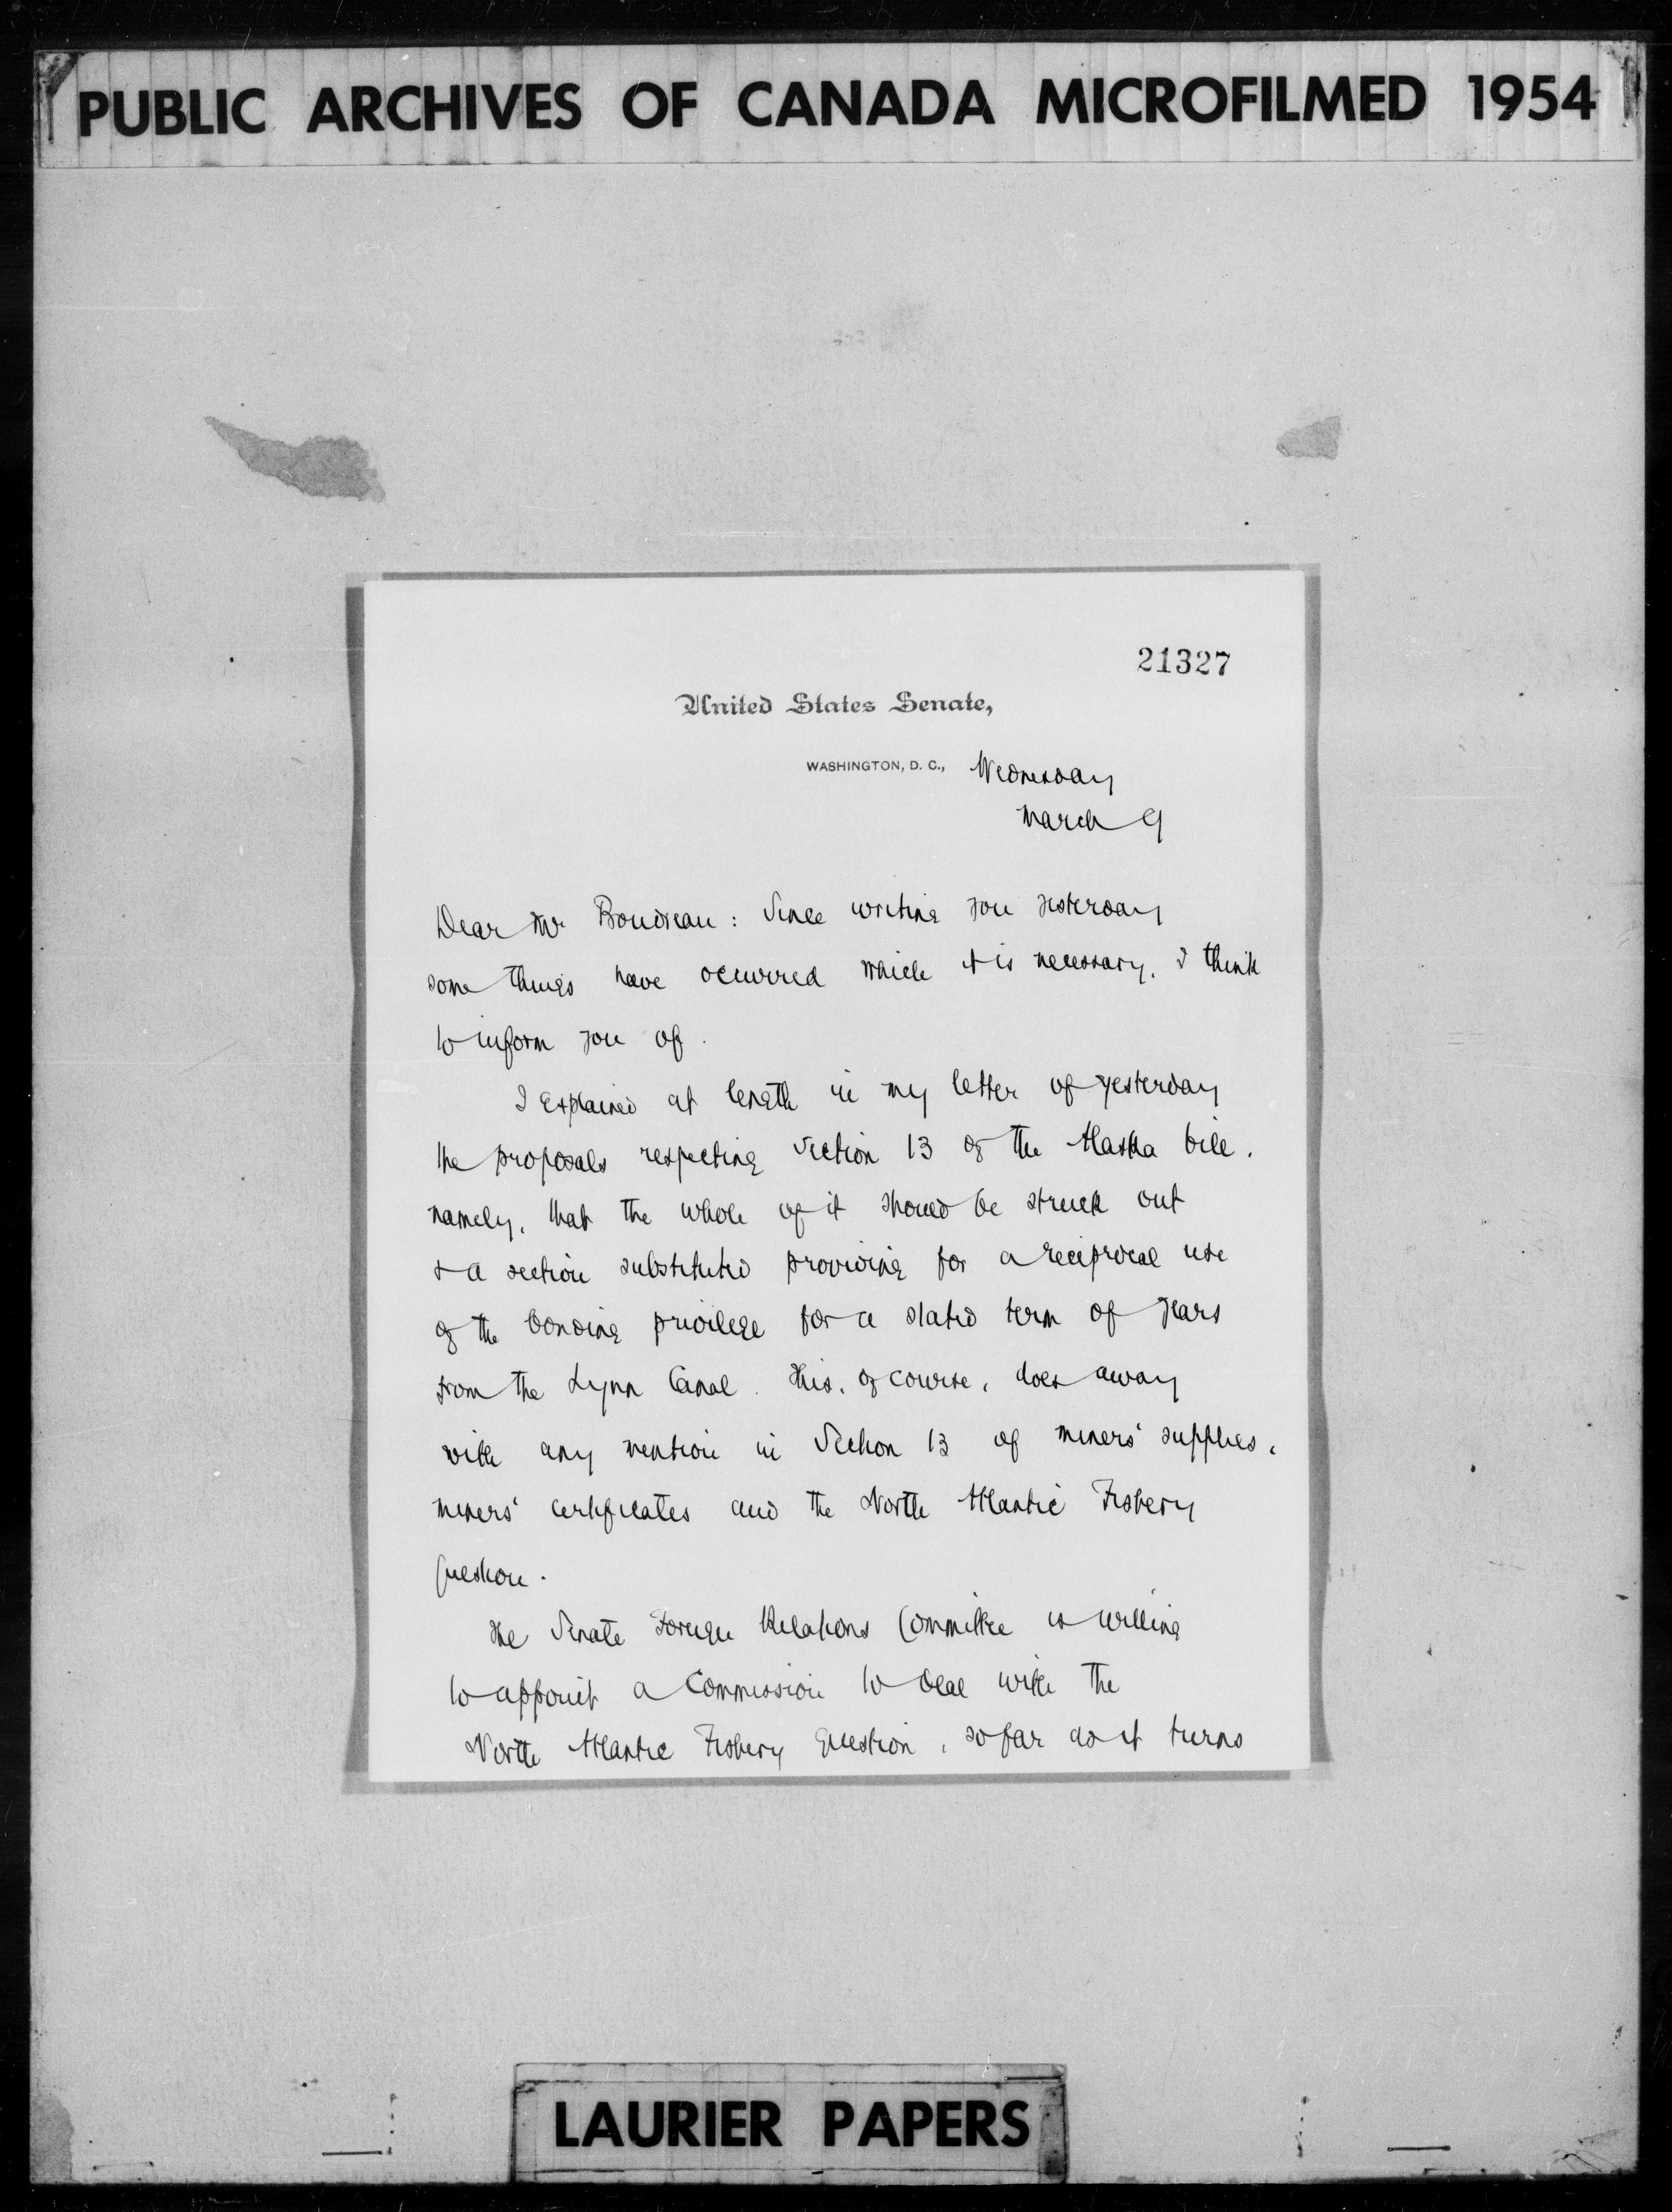 PUBLIC ARCHIVES OF CANADA MICROFILMED 1954
21327
United States Senate,
WASHINGTON, D. C., Wednesday
March 9
Dear Mr Boudreau: Since writing you yesterday
some things have occurred which it is necessary, I think
to inform you of.
I explained at length in my letter of yesterday
the proposals respecting Section 13 of the Alaska bill,
namely, that the whole of it should be struck out
& a section substituted providing for a reciprocal use
of the bonding privilege for a stated term of years
from the Lynn Canal. This, of course, does away
with any mention in Section 13 of miners' supplies,
miners' certificates and the North Atlantic Fishery
Question.
The Senate Foreign Relations Committee is willing
to appoint a Commission to deal with the
North Atlantic Fishery Question, so far as it turns
LAURIER PAPERS